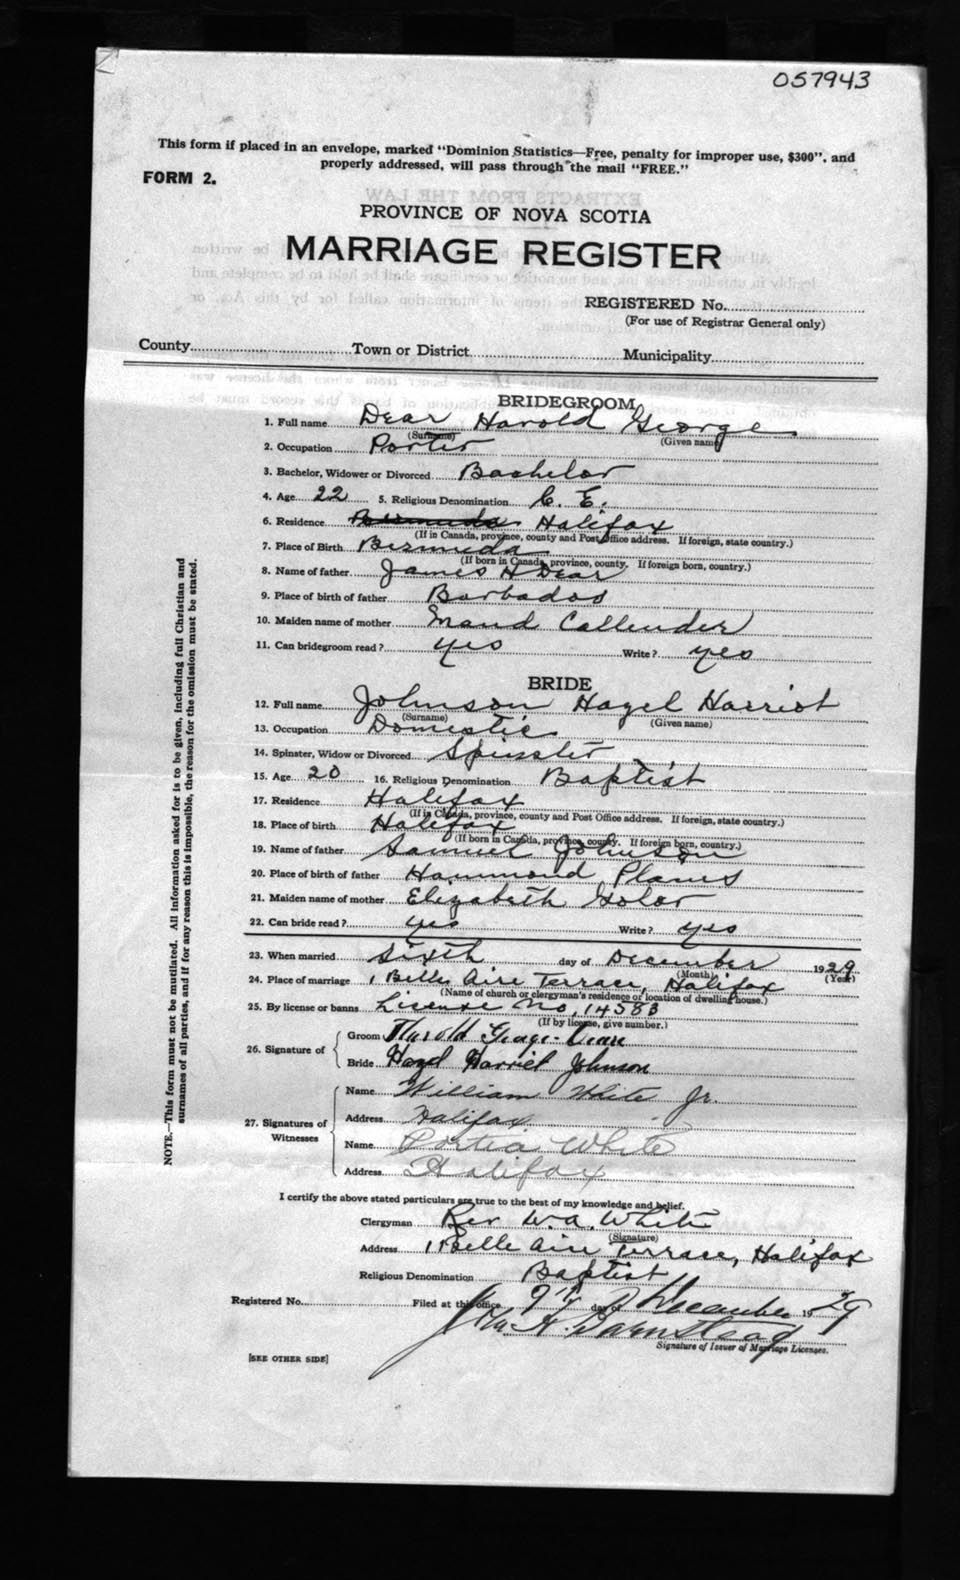 057943
This form if placed in an envelope, marked "Dominion Statistics—Free, penalty for improper use, $300", and
properly addressed, will pass through the mail "FREE."
FORM 2.
PROVINCE OF NOVA SCOTIA
MARRIAGE REGISTER
REGISTERED No.
(For use of Registrar General only)
County Town or District Municipality
BRIDEGROOM
1. Full name Dear Harold George
(Surname) (Given name)
2. Occupation Porter
3. Bachelor, Widower or Divorced Bachelor
4. Age 22 5. Religious Denomination C. E.
6. Residence Bermuda Halifax
(If in Canada, province, county and Post Office address. If foreign, state country.)
7. Place of Birth Bermuda
(If born in Canada, province, county. If foreign born, country.)
8. Name of father James H Dear
9. Place of birth of father Barbados
10. Maiden name of mother Maud Callender
11. Can bridegroom read? yes Write? yes
BRIDE
12. Full name Johnson Hazel Harriet
(Surname) (Given name)
13. Occupation Domestic
14. Spinster, Widow or Divorced Spinster
15. Age 20 16. Religious Denomination Baptist
17. Residence Halifax
(If in Canada, province, county and Post Office address. If foreign, state country.)
18. Place of birth Halifax
(If born in Canada, province, county. If foreign born, country.)
19. Name of father Samuel Johnson
20. Place of birth of father Hammond Plains
21. Maiden name of mother Elizabeth Golar
22. Can bride read? yes Write? yes
23. When married Sixth day of December 1929
(Month) (Year)
24. Place of marriage 1 Belle Aire Terrace, Halifax
(Name of church or clergyman's residence or location of dwelling house.)
25. By license or banns License No. 14583
(If by license, give number.)
26. Signature of Groom Harold George Dear
Bride Hazel Harriet Johnson
27. Signatures of Witnesses
Name William White Jr.
Address Halifax
Name Portia White
Address Halifax
I certify the above stated particulars are true to the best of my knowledge and belief.
Clergyman Rev W. A. White
(Signature)
Address 1 Belle Aire Terrace, Halifax
Religious Denomination Baptist
Registered No. Filed at this office 9th day of December 1929
Barnstead
Signature of Issuer of Marriage Licenses.
[SEE OTHER SIDE]
NOTE.—This form must not be mutilated. All information asked for is to be given, including full Christian and
surnames of all parties, and if for any reason this is impossible, the reason for the omission must be stated.